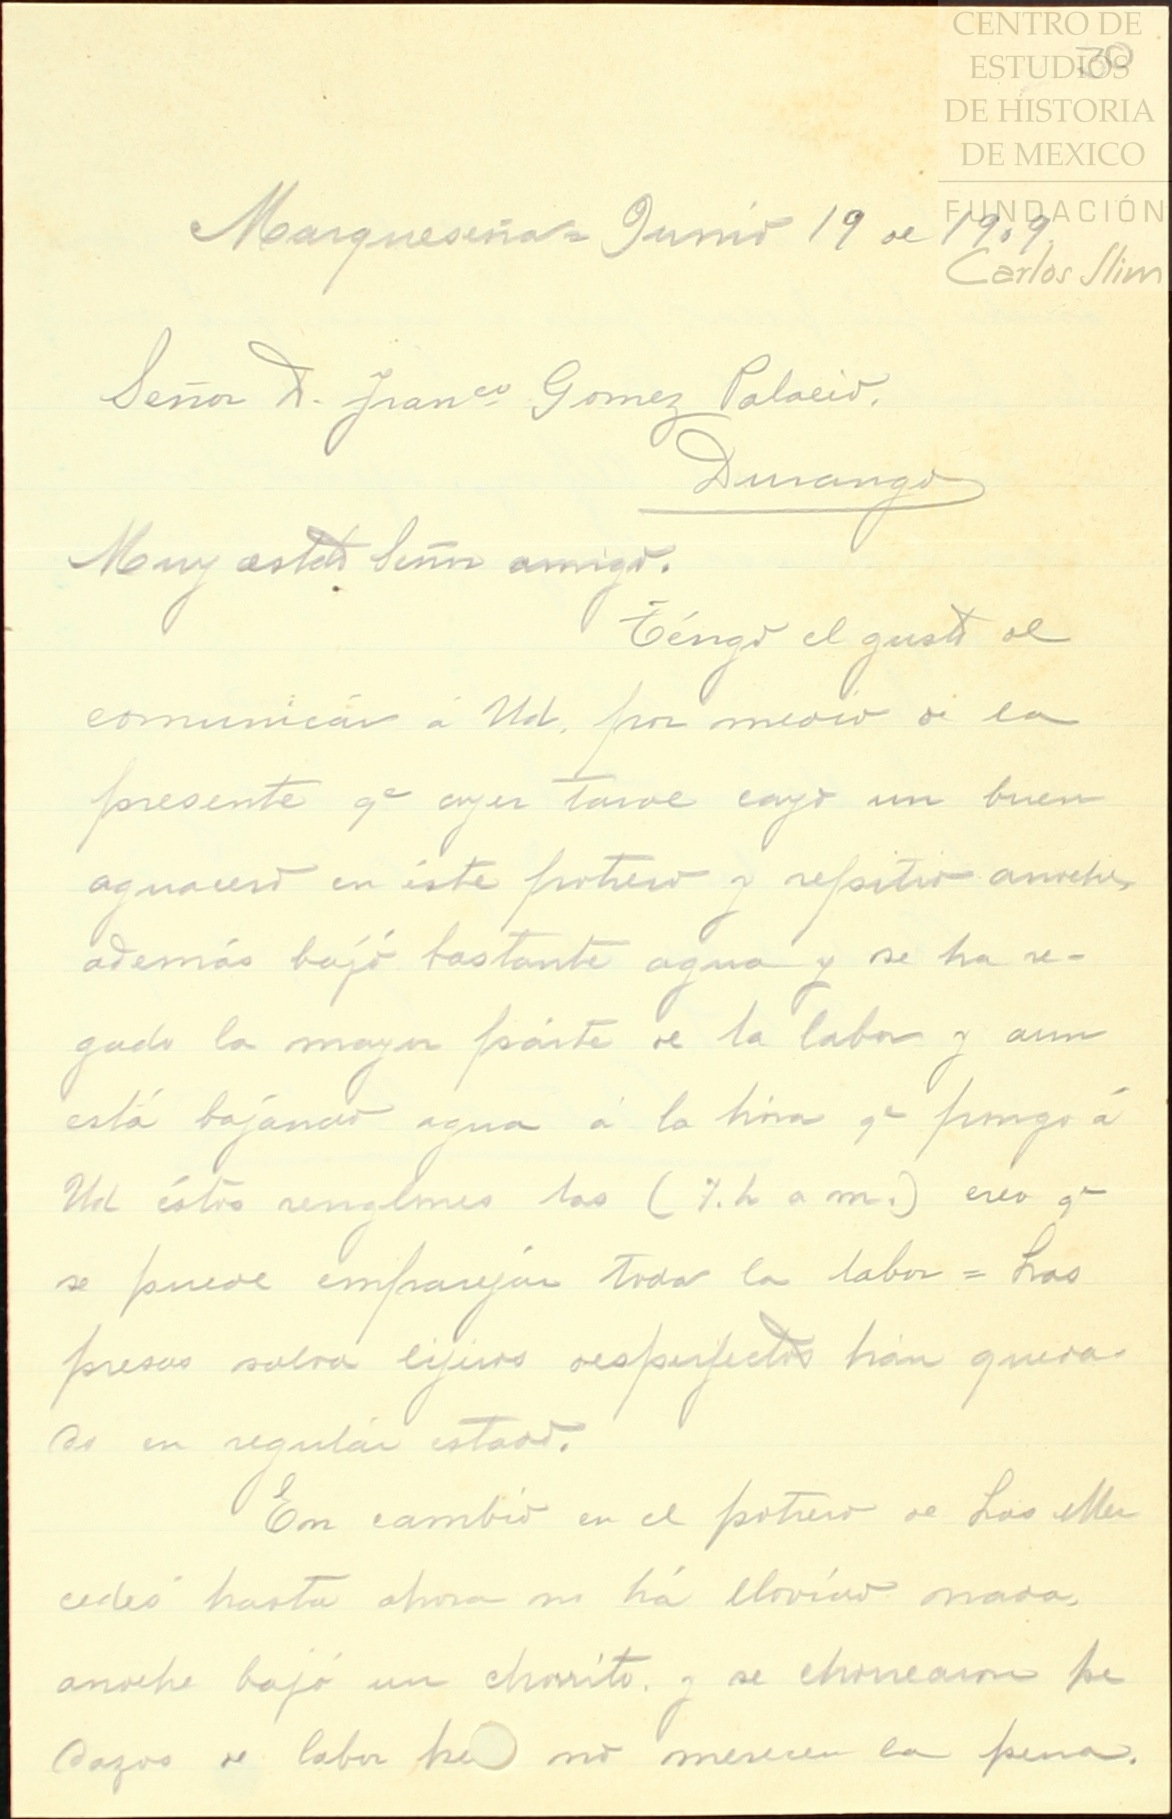 CENTRO DE
ESTUDIOS
DE HISTORIA
DE MEXICO
FUNDACIÓN
Carlos Slim
30
Marqueseña = Junio 19 de 1909.
Señor D. Franco Gomez Palacio.
Durango
Muy estdo Señor amigo.
Téngo el gusto de
comunicár á Ud. por medio de la
presente qe ayer tarde cayó un buen
aguacero en éste potrero y repitió anoche,
además bajó bastante agua y se ha re-
gado la mayor párte de la labor y aun
está bajándo agua á la hóra qe pongo á
Ud éstos renglones las (7. h a m.) creo qe
se puede emparejár toda la labor = Las
presas salvo lijeros desperfectos hán queda-
do en regulár estado.
En cambio en el potrero de Las Mer
cedes hasta ahora no há llovído nada,
anoche bajó un chorrito. y se chorrearon pe
dazos de labor no merecen la pena.